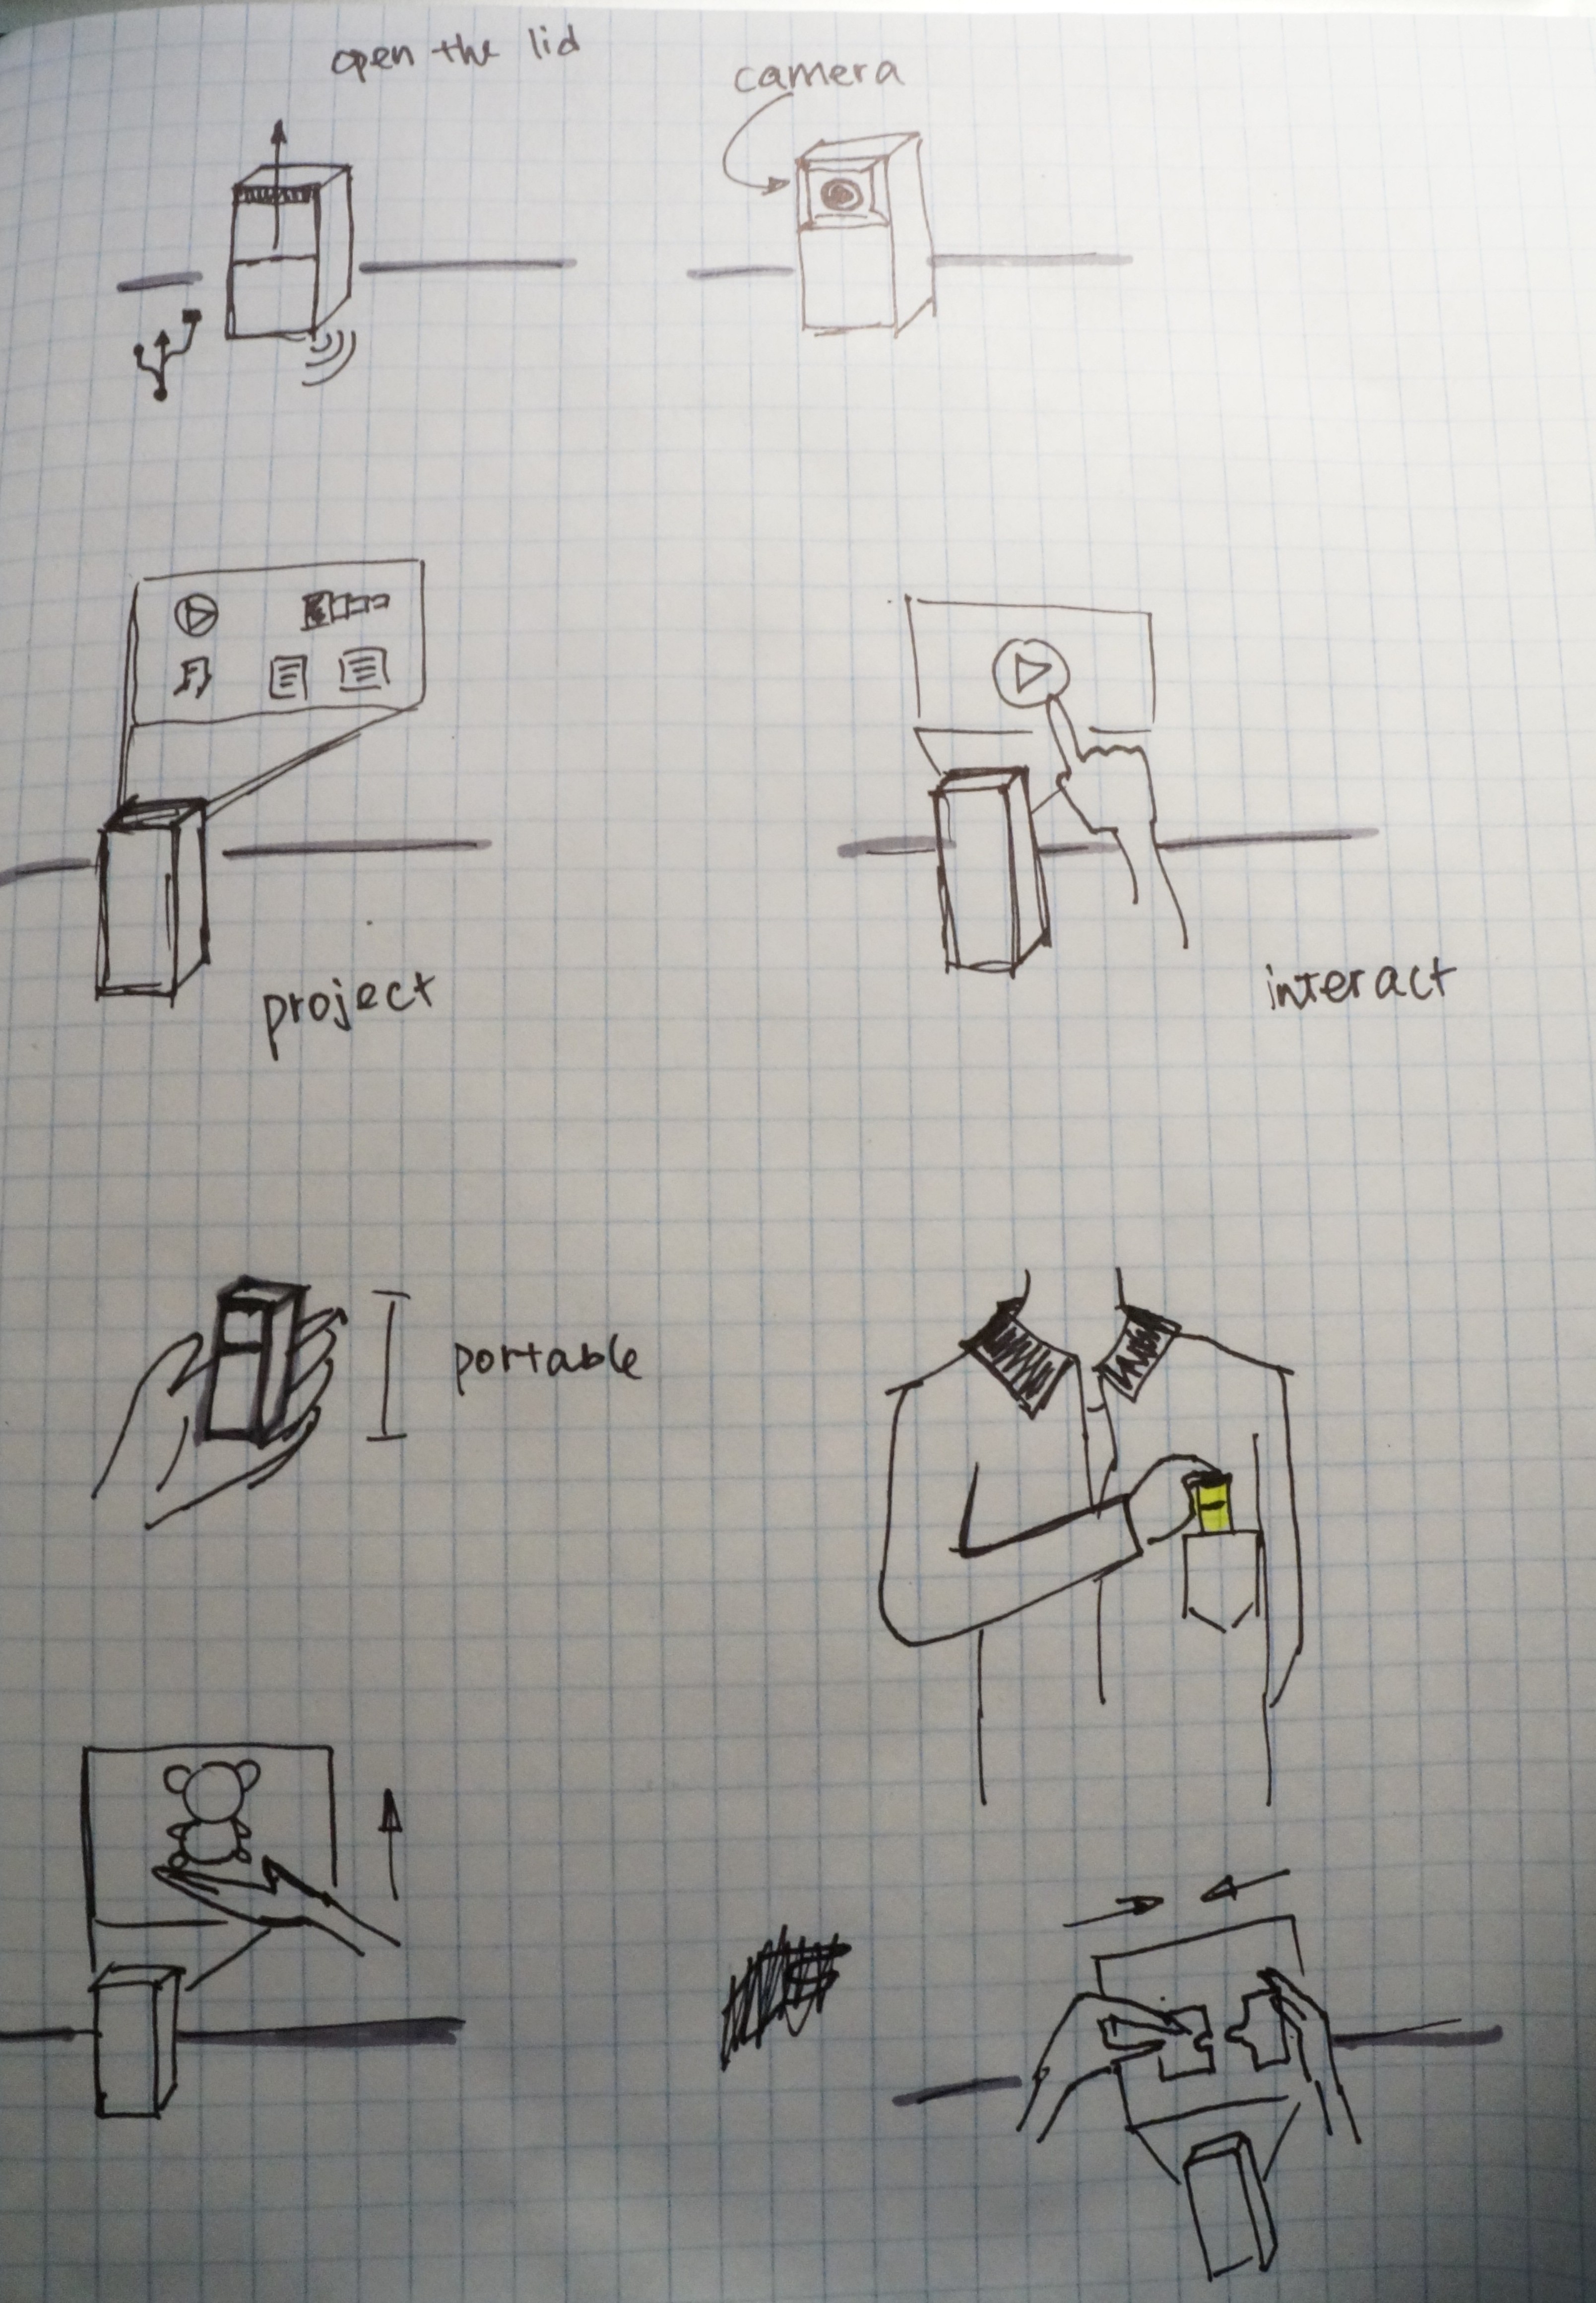 open the lid
camera
project
interact
portable